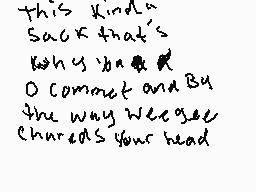 this kinda
suck that's
why
0 commet and By
the way weegee
your head